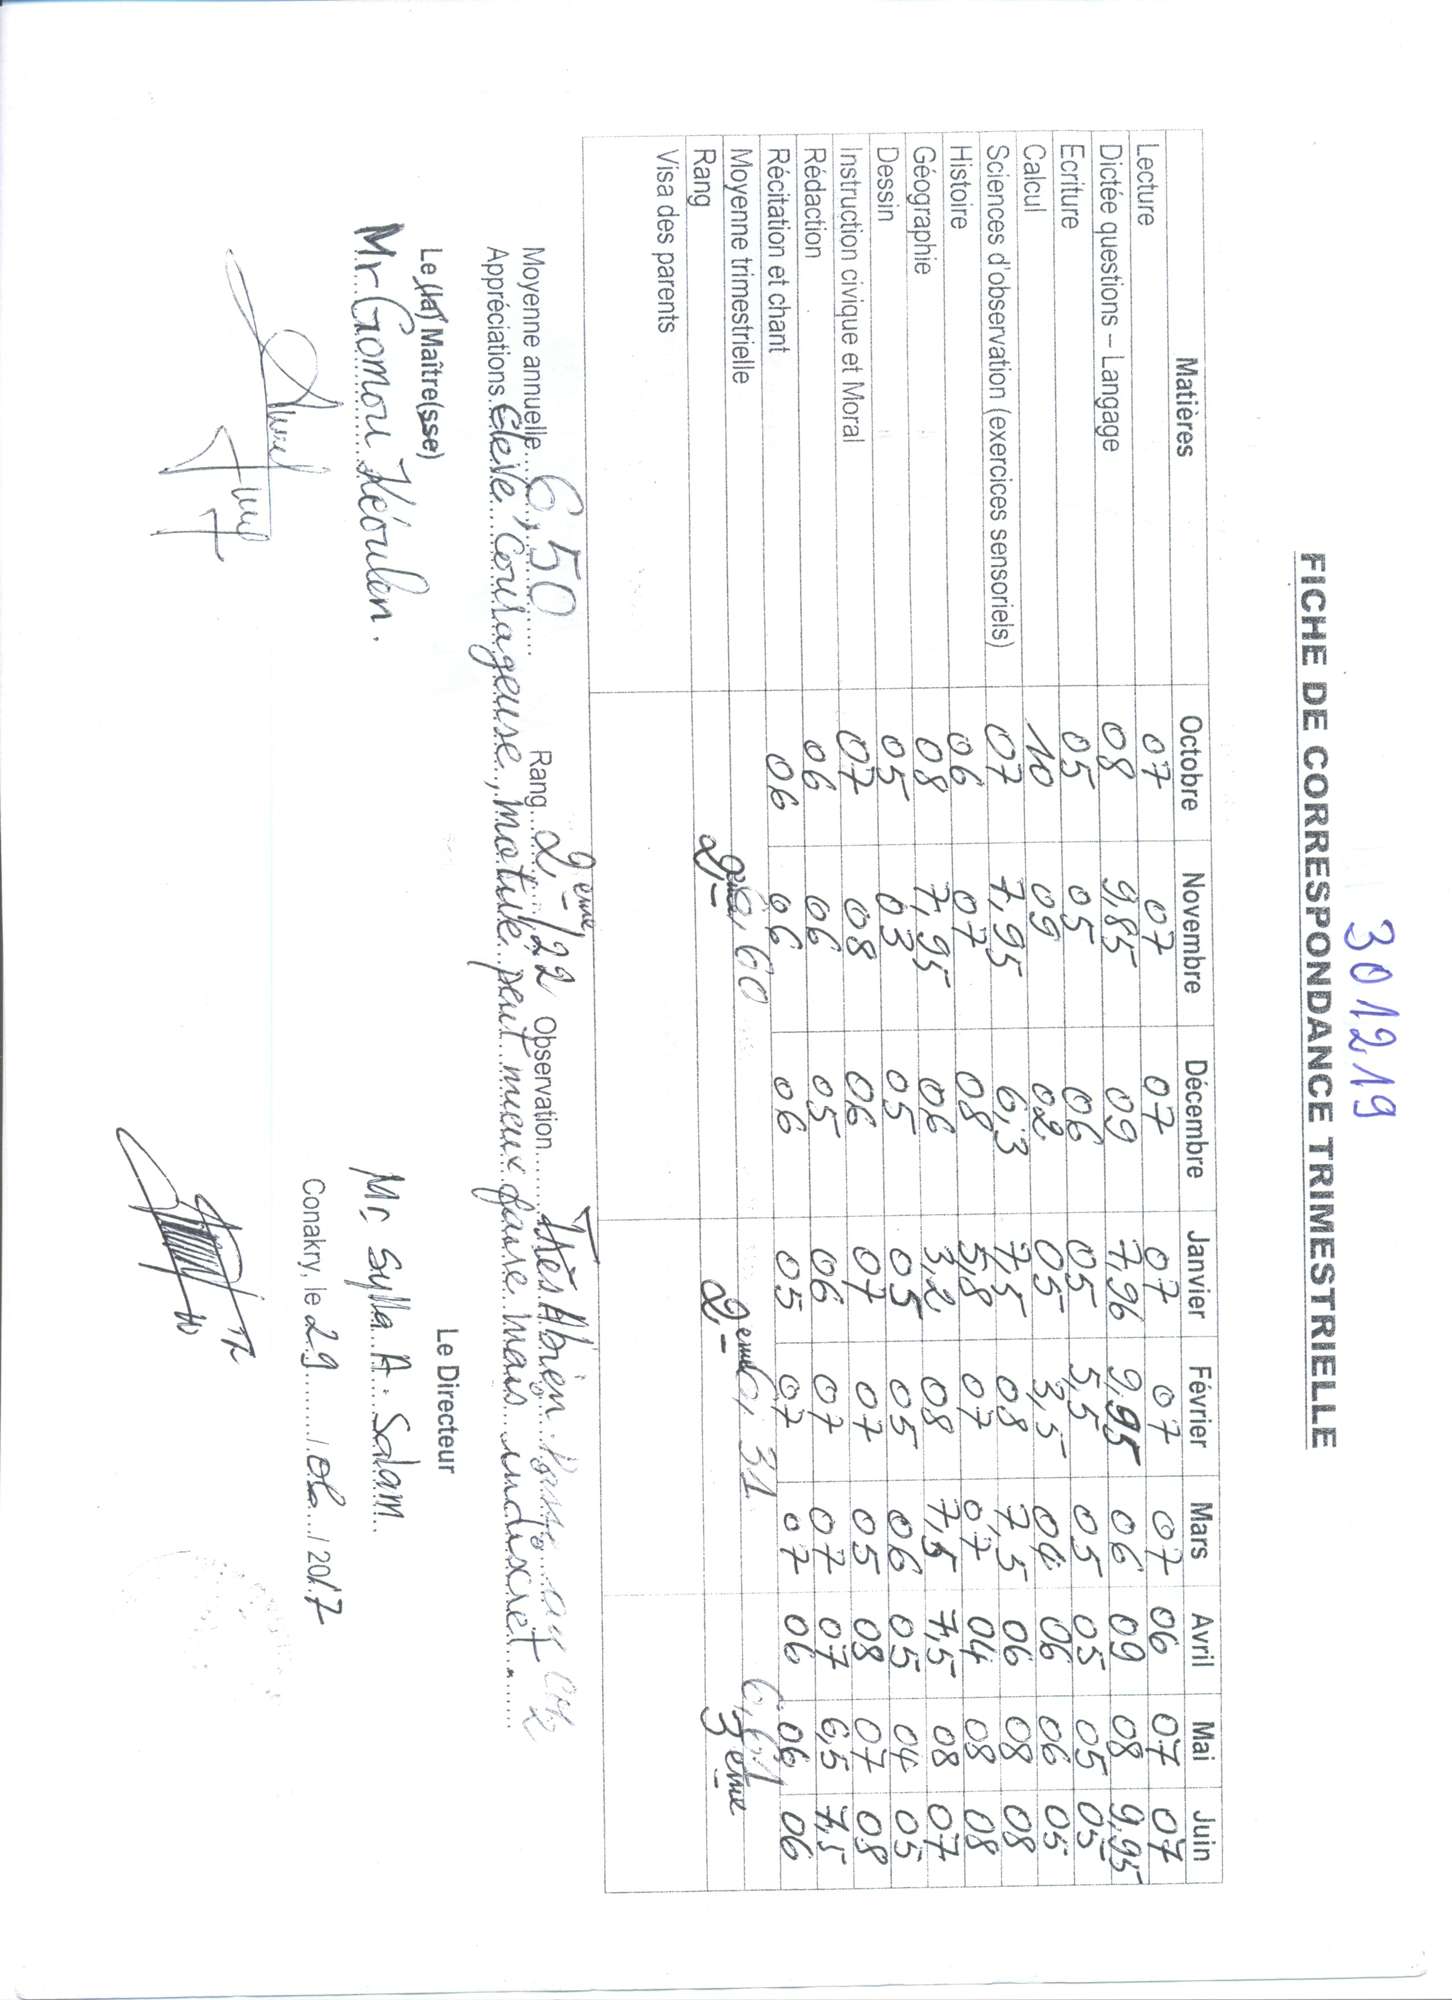 301219
FICHE DE CORRESPONDANCE TRIMESTRIELLE
Matières Octobre Novembre Décembre Janvier Février Mars Avril Mai Juin
Lecture 07 07 07 07 07 07 06 07 07
Dictée questions – Langage 08 9,85 09 7,96 9,95 06 09 08 9,95
Ecriture 05 05 06 05 5,5 05 05 05 05
Calcul 10 09 02 05 3,5 04 06 06 05
Sciences d'observation (exercices sensoriels) 07 7,95 6,3 7,5 08 7,5 06 08 08
Histoire 06 07 08 5,8 07 07 04 08 08
Géographie 08 7,95 06 3,2 08 7,5 7,5 08 07
Dessin 05 03 05 05 05 06 05 04 05
Instruction civique et Moral 07 08 06 07 07 05 08 07 08
Rédaction 06 06 05 06 07 07 07 6,5 7,5
Récitation et chant 06 06 06 05 07 07 06 06 06
Moyenne trimestrielle 6,60 6,31 6,61
Rang 2ème 2ème 3ème
Visa des parents
Moyenne annuelle 6,50 Rang 2ème/22 Observation Très bien. Passe au
Appréciations Elève Courageuse, motivé peut mieux faire mais indiscret.
Le (la) Maître(sse) Le Directeur
Mr Gomou Kéoulen. Mr Sylla A. Salam
Conakry, le 29 / 06 / 2017